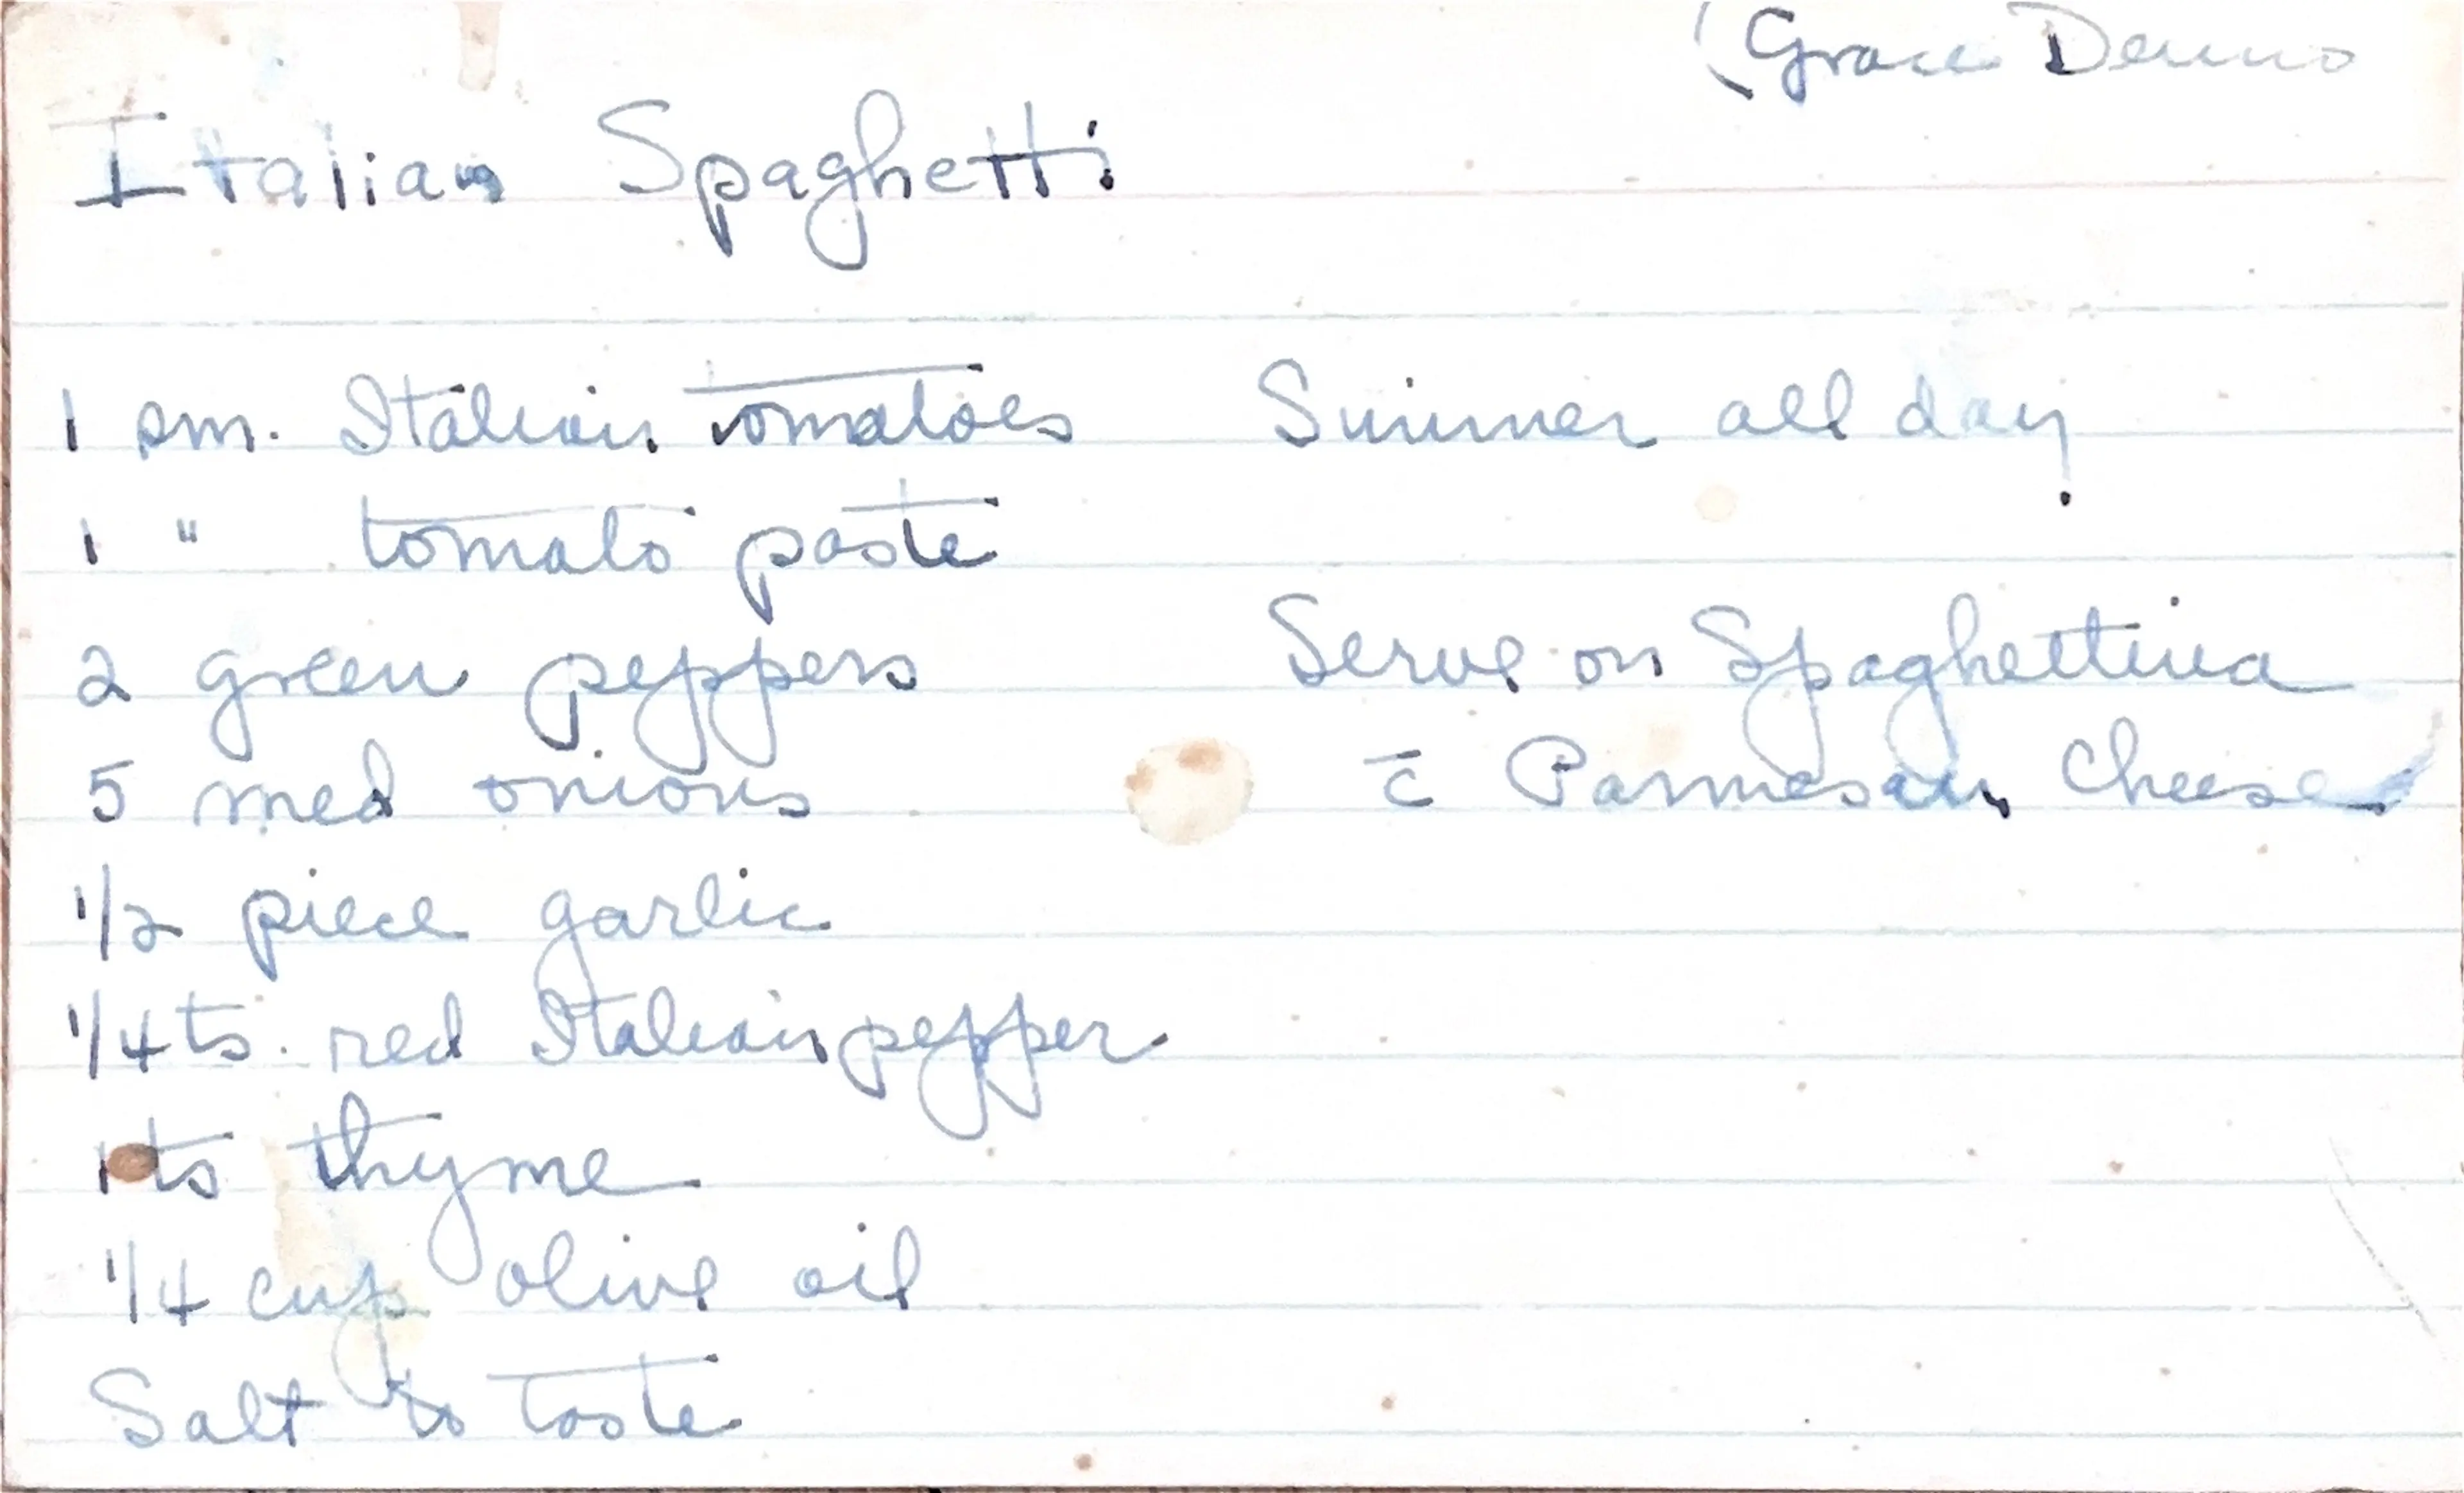 (Grace
Italian Spaghetti
1 sm. Italian tomatoes
1 " tomato paste
2 green peppers
5 med onions
1/2 piece garlic
1/4 ts. red Italian pepper
1 ts thyme
1/4 cup olive oil
Salt to taste
Simmer all day!
Serve on Spaghettina
c̄ Parmesan Cheese